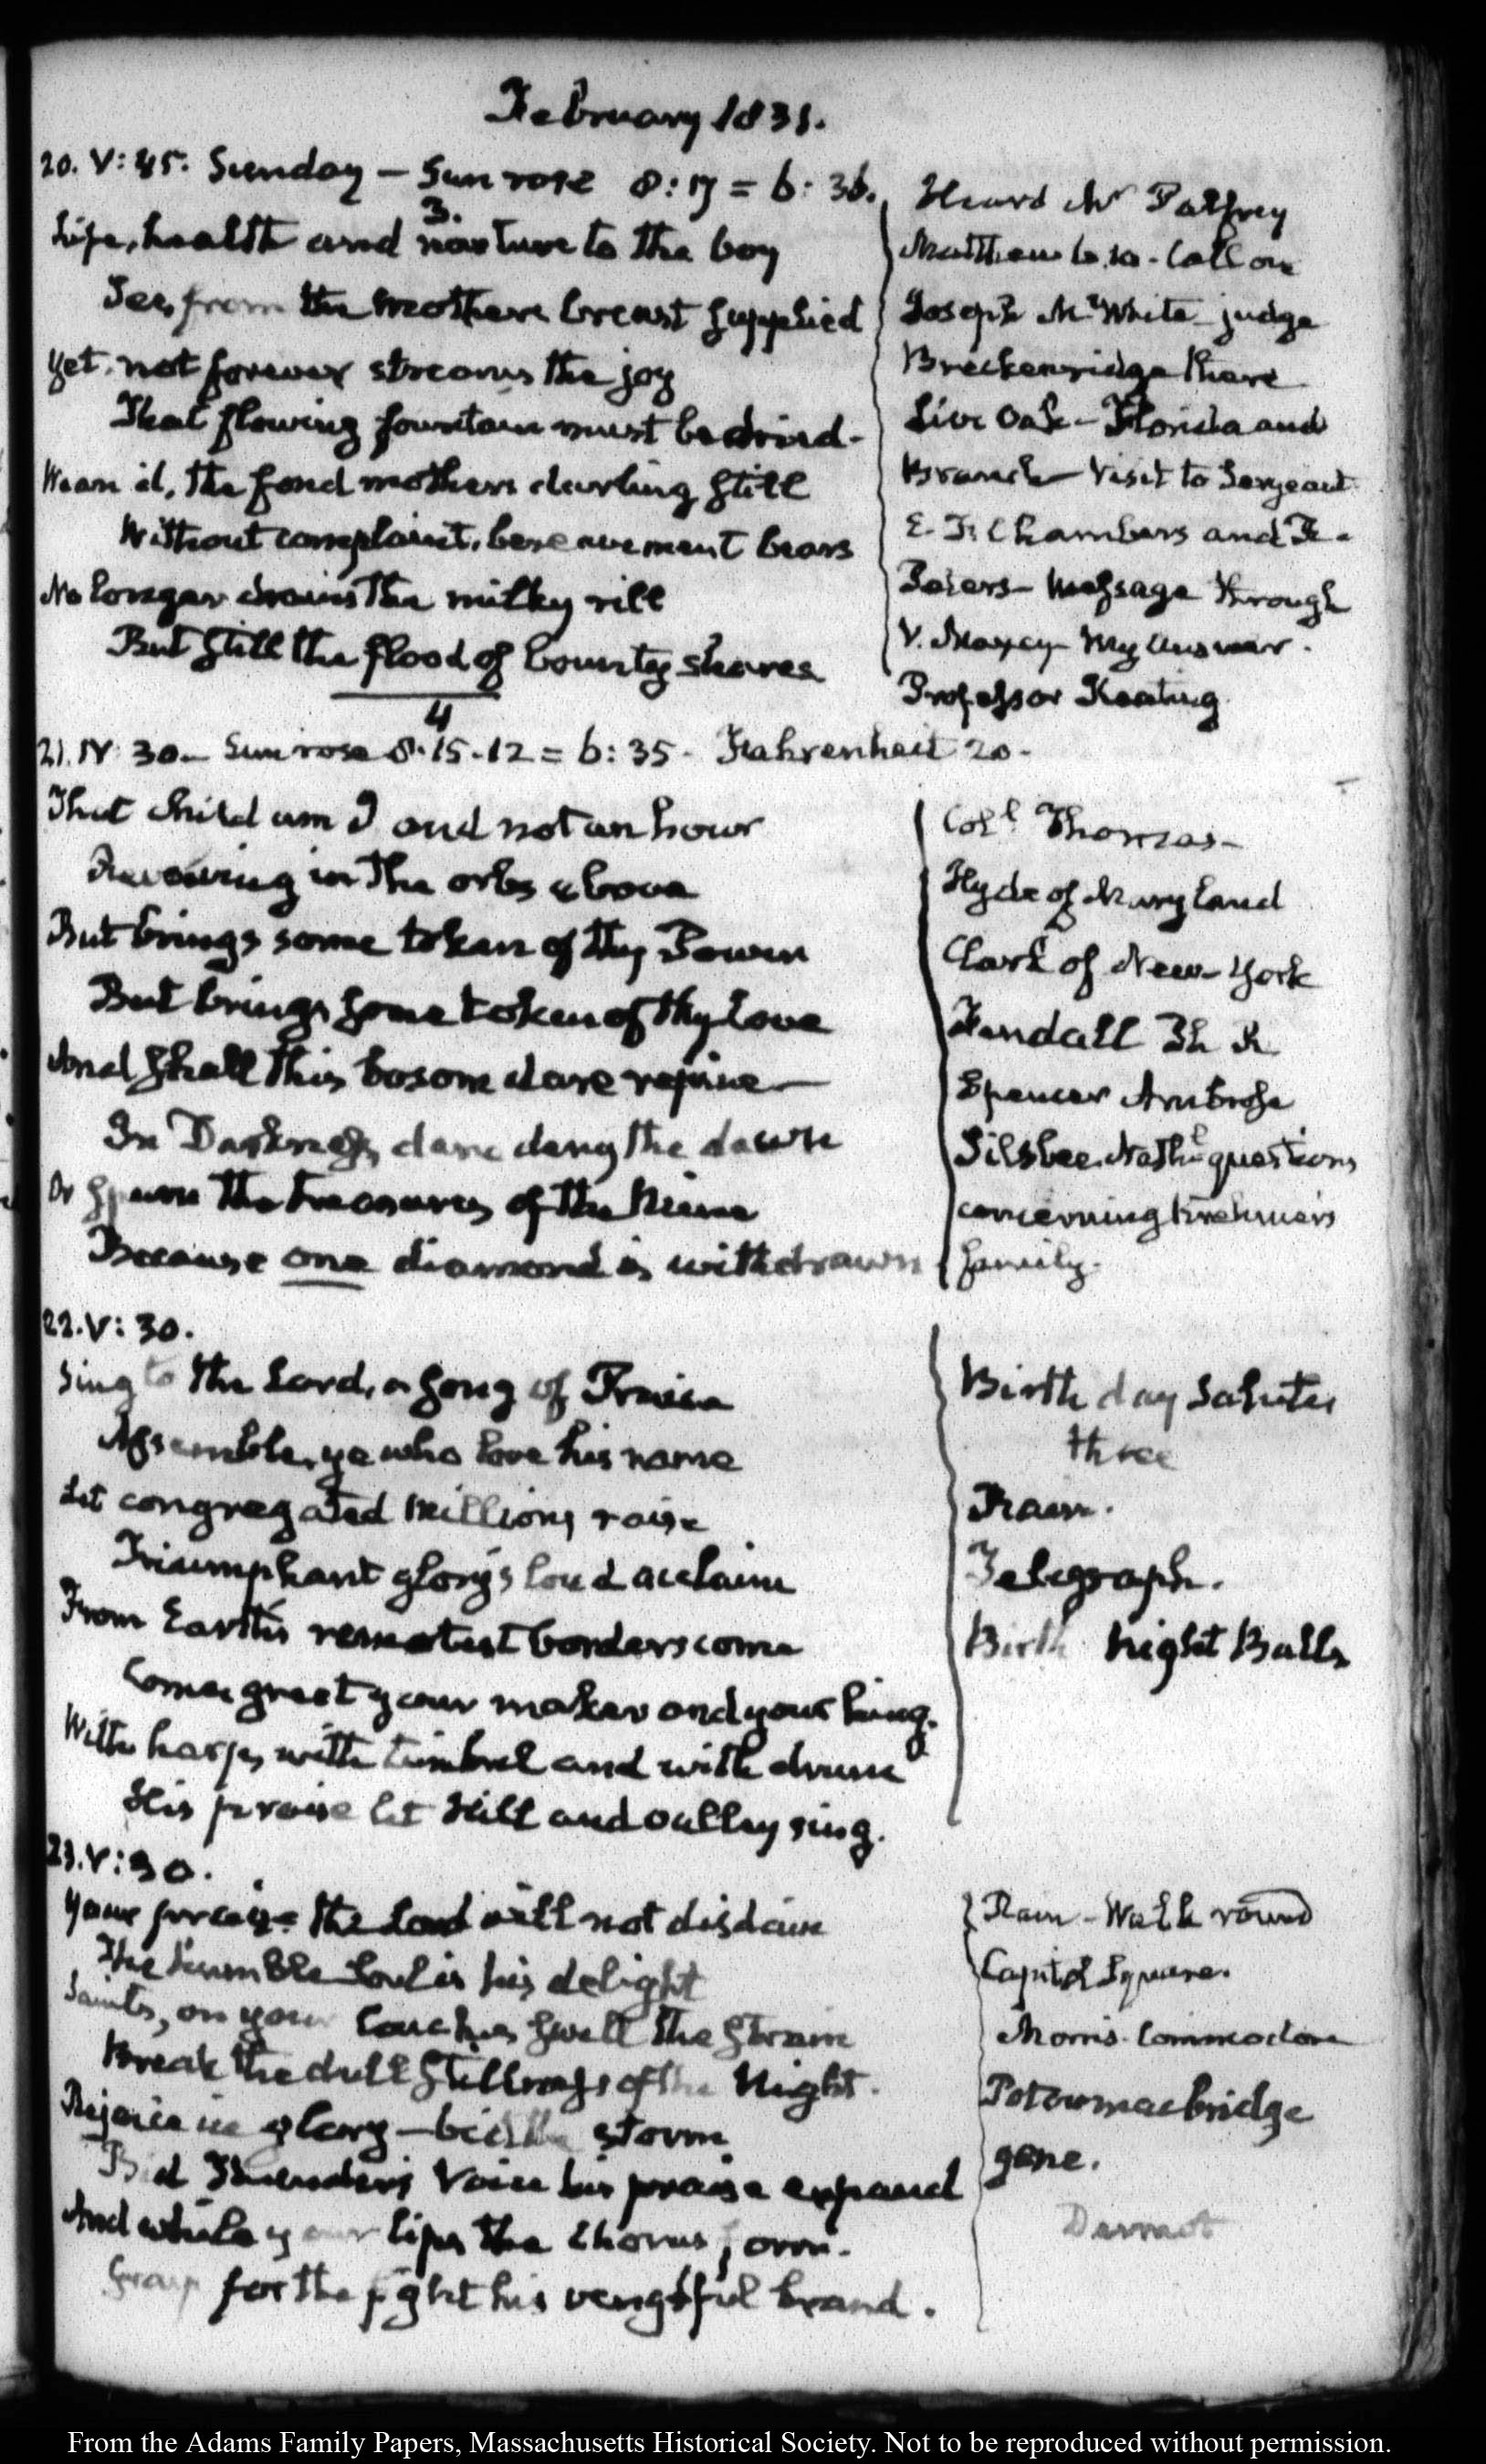 February 1831.
20. V: 45. Sunday – Sun rose 8:17 = 6:36.
3.
Life, health and nurture to the boy
See, from the mothers breast supplied
Yet not forever streams the joy
That flowing fountain must be dried –
Wean'd, the fond mothers darling still
Without complaint, bereavement bears
No longer drains the milky rill
But still the flood of bounty shares
Heard Mr Palfrey
Matthew 6.10 – Call on
Joseph M. White – judge
Breckenridge there
Live Oak – Florida and
Branch – Visit to Sergeant
E. F. Chambers and R.
Peters – Message through
V. Maxcy – My answer.
Professor Keating
4
21. IV: 30 – Sun rose 8.15.12 = 6:35 – Fahrenheit 20 –
That Child am I and not an hour
Revolving in the orbs above
But brings some token of thy Power
But brings some token of thy Love
And shall this bosom dare repine –
In Darkness dare deny the dawn
Or spurn the treasures of the Mine
Because one diamond is withdrawn
Coll. Thomas –
Hyde of Maryland
Clark of New-York
Kendall
Spencer Ambrose
Silsbee, Nathl questions
concerning Krehmer's
family.
22. V: 30.
Sing to the Lord, a song of Praise
Assemble, ye who love his name
Let congregated Millions raise
Triumphant glory's loud acclaim
From Earth's remotest borders come
Come, greet your maker and your king.
With harp, with timbrel and with drum
His praise let Hill and valley sing.
Birth day Salutes
three
Rain.
Telegraph.
Birth Night Balls
23. V: 30.
Your praise the Lord will not disdain
The humble soul is his delight
Saints, on your Couches swell the strain
Break the dull stillness of the Night.
Rejoice in glory – bid the storm
Bid Thunder's Voice his praise expand
And while your lips the Chorus form.
Grasp for the fight his vengeful brand.
Rain – Walk round
Capitol Square.
Morris – Commodore
Potowmac bridge
gone.
Dermot
From the Adams Family Papers, Massachusetts Historical Society. Not to be reproduced without permission.